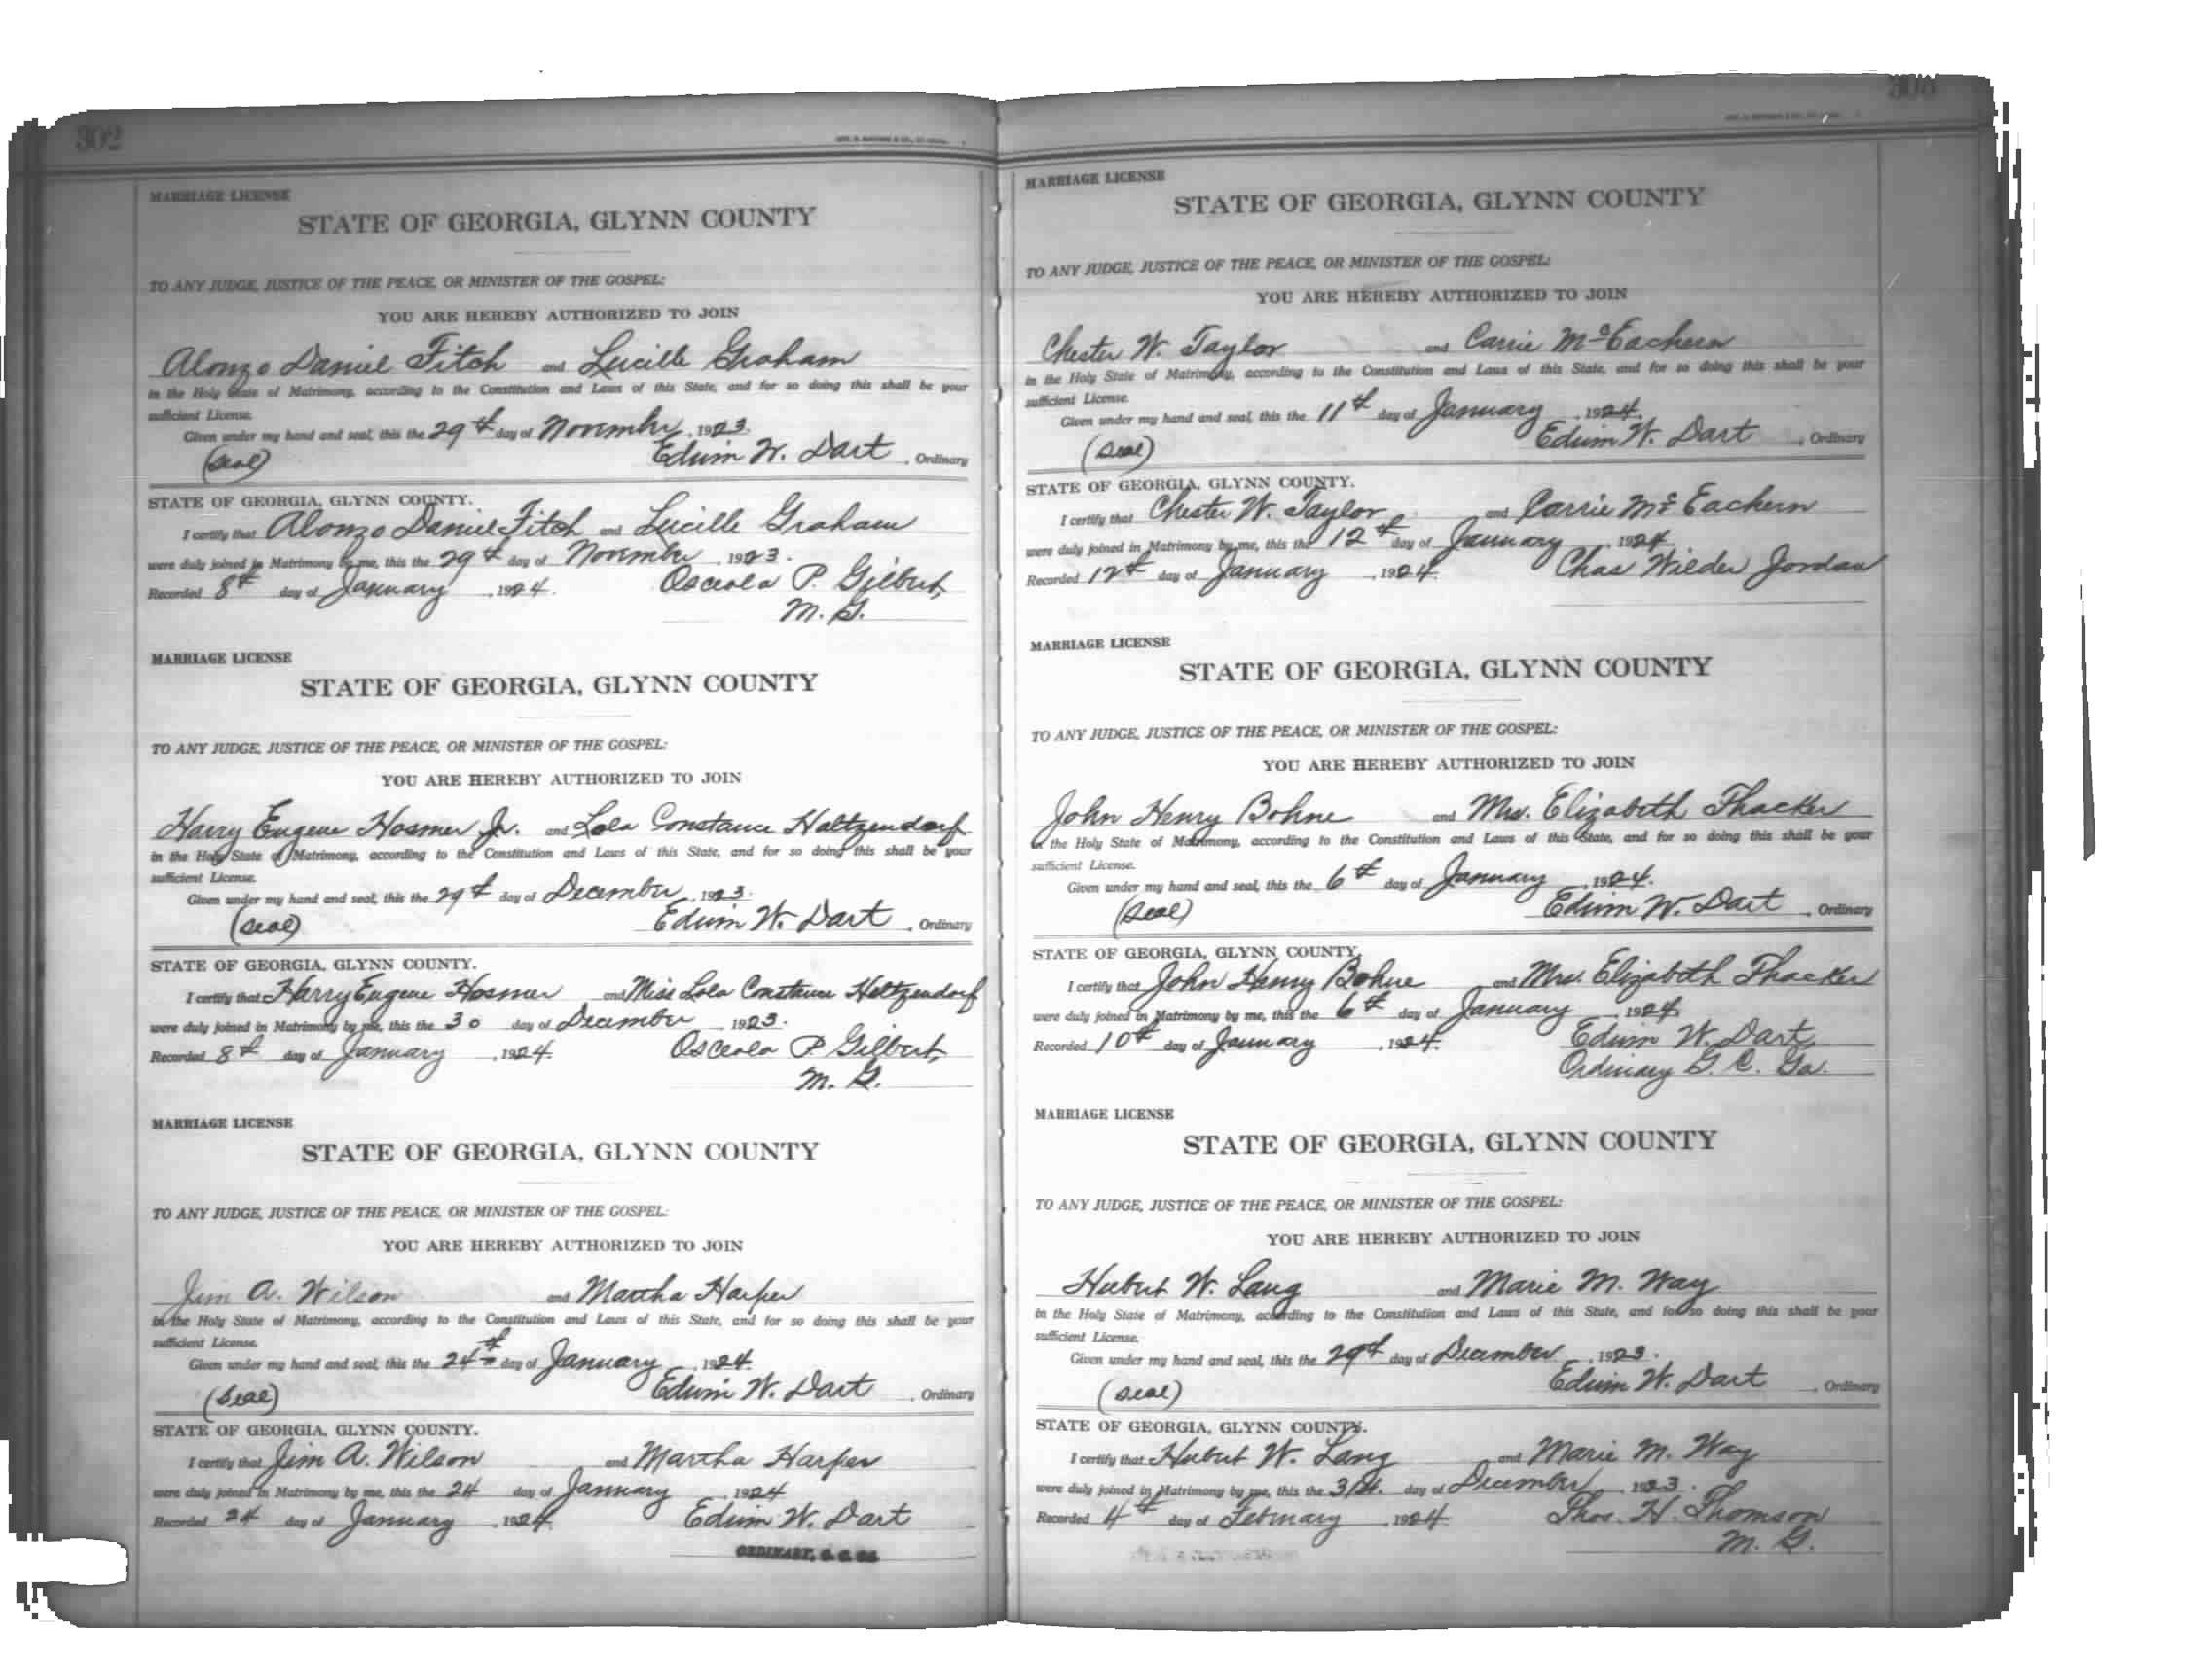 302
MARRIAGE LICENSE
STATE OF GEORGIA, GLYNN COUNTY
TO ANY JUDGE, JUSTICE OF THE PEACE, OR MINISTER OF THE GOSPEL:
YOU ARE HEREBY AUTHORIZED TO JOIN
Alonzo Daniel Fitch and Lucille Graham
in the Holy State of Matrimony, according to the Constitution and Laws of this State, and for so doing this shall be your
sufficient License.
Given under my hand and seal, this the 29th day of November, 1923.
(Seal) Edwin W. Dart, Ordinary
STATE OF GEORGIA, GLYNN COUNTY.
I certify that Alonzo Daniel Fitch and Lucille Graham
were duly joined in Matrimony by me, this the 29th day of November, 1923.
Recorded 8th day of January, 1924. Osceola P. Gilbert,
M. G.
MARRIAGE LICENSE
STATE OF GEORGIA, GLYNN COUNTY
TO ANY JUDGE, JUSTICE OF THE PEACE, OR MINISTER OF THE GOSPEL:
YOU ARE HEREBY AUTHORIZED TO JOIN
Harry Eugene Hosmer Jr. and Lola Constance Holtzendorf
in the Holy State of Matrimony, according to the Constitution and Laws of this State, and for so doing this shall be your
sufficient License.
Given under my hand and seal, this the 29th day of December, 1923.
(Seal) Edwin W. Dart, Ordinary
STATE OF GEORGIA, GLYNN COUNTY.
I certify that Harry Eugene Hosmer and Miss Lola Constance Holtzendorf
were duly joined in Matrimony by me, this the 30 day of December, 1923.
Recorded 8th day of January, 1924. Osceola P. Gilbert,
M. G.
MARRIAGE LICENSE
STATE OF GEORGIA, GLYNN COUNTY
TO ANY JUDGE, JUSTICE OF THE PEACE, OR MINISTER OF THE GOSPEL:
YOU ARE HEREBY AUTHORIZED TO JOIN
Jim A. Wilson and Martha Harper
in the Holy State of Matrimony, according to the Constitution and Laws of this State, and for so doing this shall be your
sufficient License.
Given under my hand and seal, this the 24th day of January, 1924.
(Seal) Edwin W. Dart, Ordinary
STATE OF GEORGIA, GLYNN COUNTY.
I certify that Jim A. Wilson and Martha Harper
were duly joined in Matrimony by me, this the 24 day of January, 1924
Recorded 24 day of January, 1924. Edwin W. Dart
ORDINARY, G. C. GA.
MARRIAGE LICENSE
STATE OF GEORGIA, GLYNN COUNTY
TO ANY JUDGE, JUSTICE OF THE PEACE, OR MINISTER OF THE GOSPEL:
YOU ARE HEREBY AUTHORIZED TO JOIN
Chester W. Taylor and Carrie McEachern
in the Holy State of Matrimony, according to the Constitution and Laws of this State, and for so doing this shall be your
sufficient License.
Given under my hand and seal, this the 11th day of January, 1924.
(Seal) Edwin W. Dart, Ordinary
STATE OF GEORGIA, GLYNN COUNTY.
I certify that Chester W. Taylor and Carrie McEachern
were duly joined in Matrimony by me, this the 12th day of January, 1924
Recorded 12th day of January, 1924. Chas Wilder Jordan
MARRIAGE LICENSE
STATE OF GEORGIA, GLYNN COUNTY
TO ANY JUDGE, JUSTICE OF THE PEACE, OR MINISTER OF THE GOSPEL:
YOU ARE HEREBY AUTHORIZED TO JOIN
John Henry Bohne and Mrs. Elizabeth Thacker
in the Holy State of Matrimony, according to the Constitution and Laws of this State, and for so doing this shall be your
sufficient License.
Given under my hand and seal, this the 6th day of January, 1924.
(Seal) Edwin W. Dart, Ordinary
STATE OF GEORGIA, GLYNN COUNTY.
I certify that John Henry Bohne and Mrs. Elizabeth Thacker
were duly joined in Matrimony by me, this the 6th day of January, 1924.
Recorded 10th day of January, 1924. Edwin W. Dart,
Ordinary G. C. Ga.
MARRIAGE LICENSE
STATE OF GEORGIA, GLYNN COUNTY
TO ANY JUDGE, JUSTICE OF THE PEACE, OR MINISTER OF THE GOSPEL:
YOU ARE HEREBY AUTHORIZED TO JOIN
Hubert W. Lang and Marie M. Way
in the Holy State of Matrimony, according to the Constitution and Laws of this State, and for so doing this shall be your
sufficient License.
Given under my hand and seal, this the 29th day of December, 1923.
(Seal) Edwin W. Dart, Ordinary
STATE OF GEORGIA, GLYNN COUNTY.
I certify that Hubert W. Lang and Marie M. Way
were duly joined in Matrimony by me, this the 31st. day of December, 1923.
Recorded 4th day of February, 1924. Thos. H. Thomson
M. G.